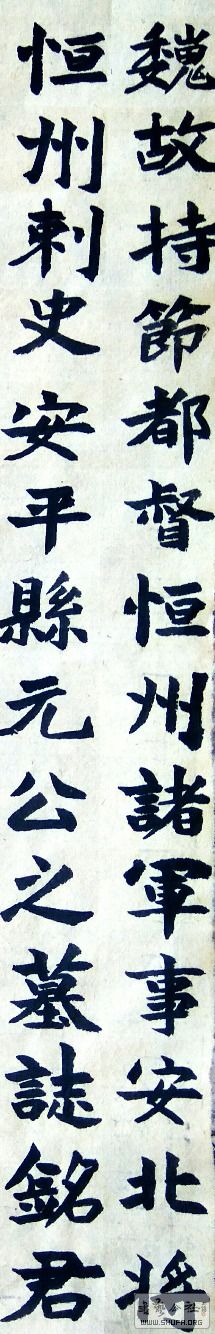 魏故持節都督恒州諸軍事安北將
恒州刺史安平縣元公之墓誌銘君
WWW.SHUFA.ORG